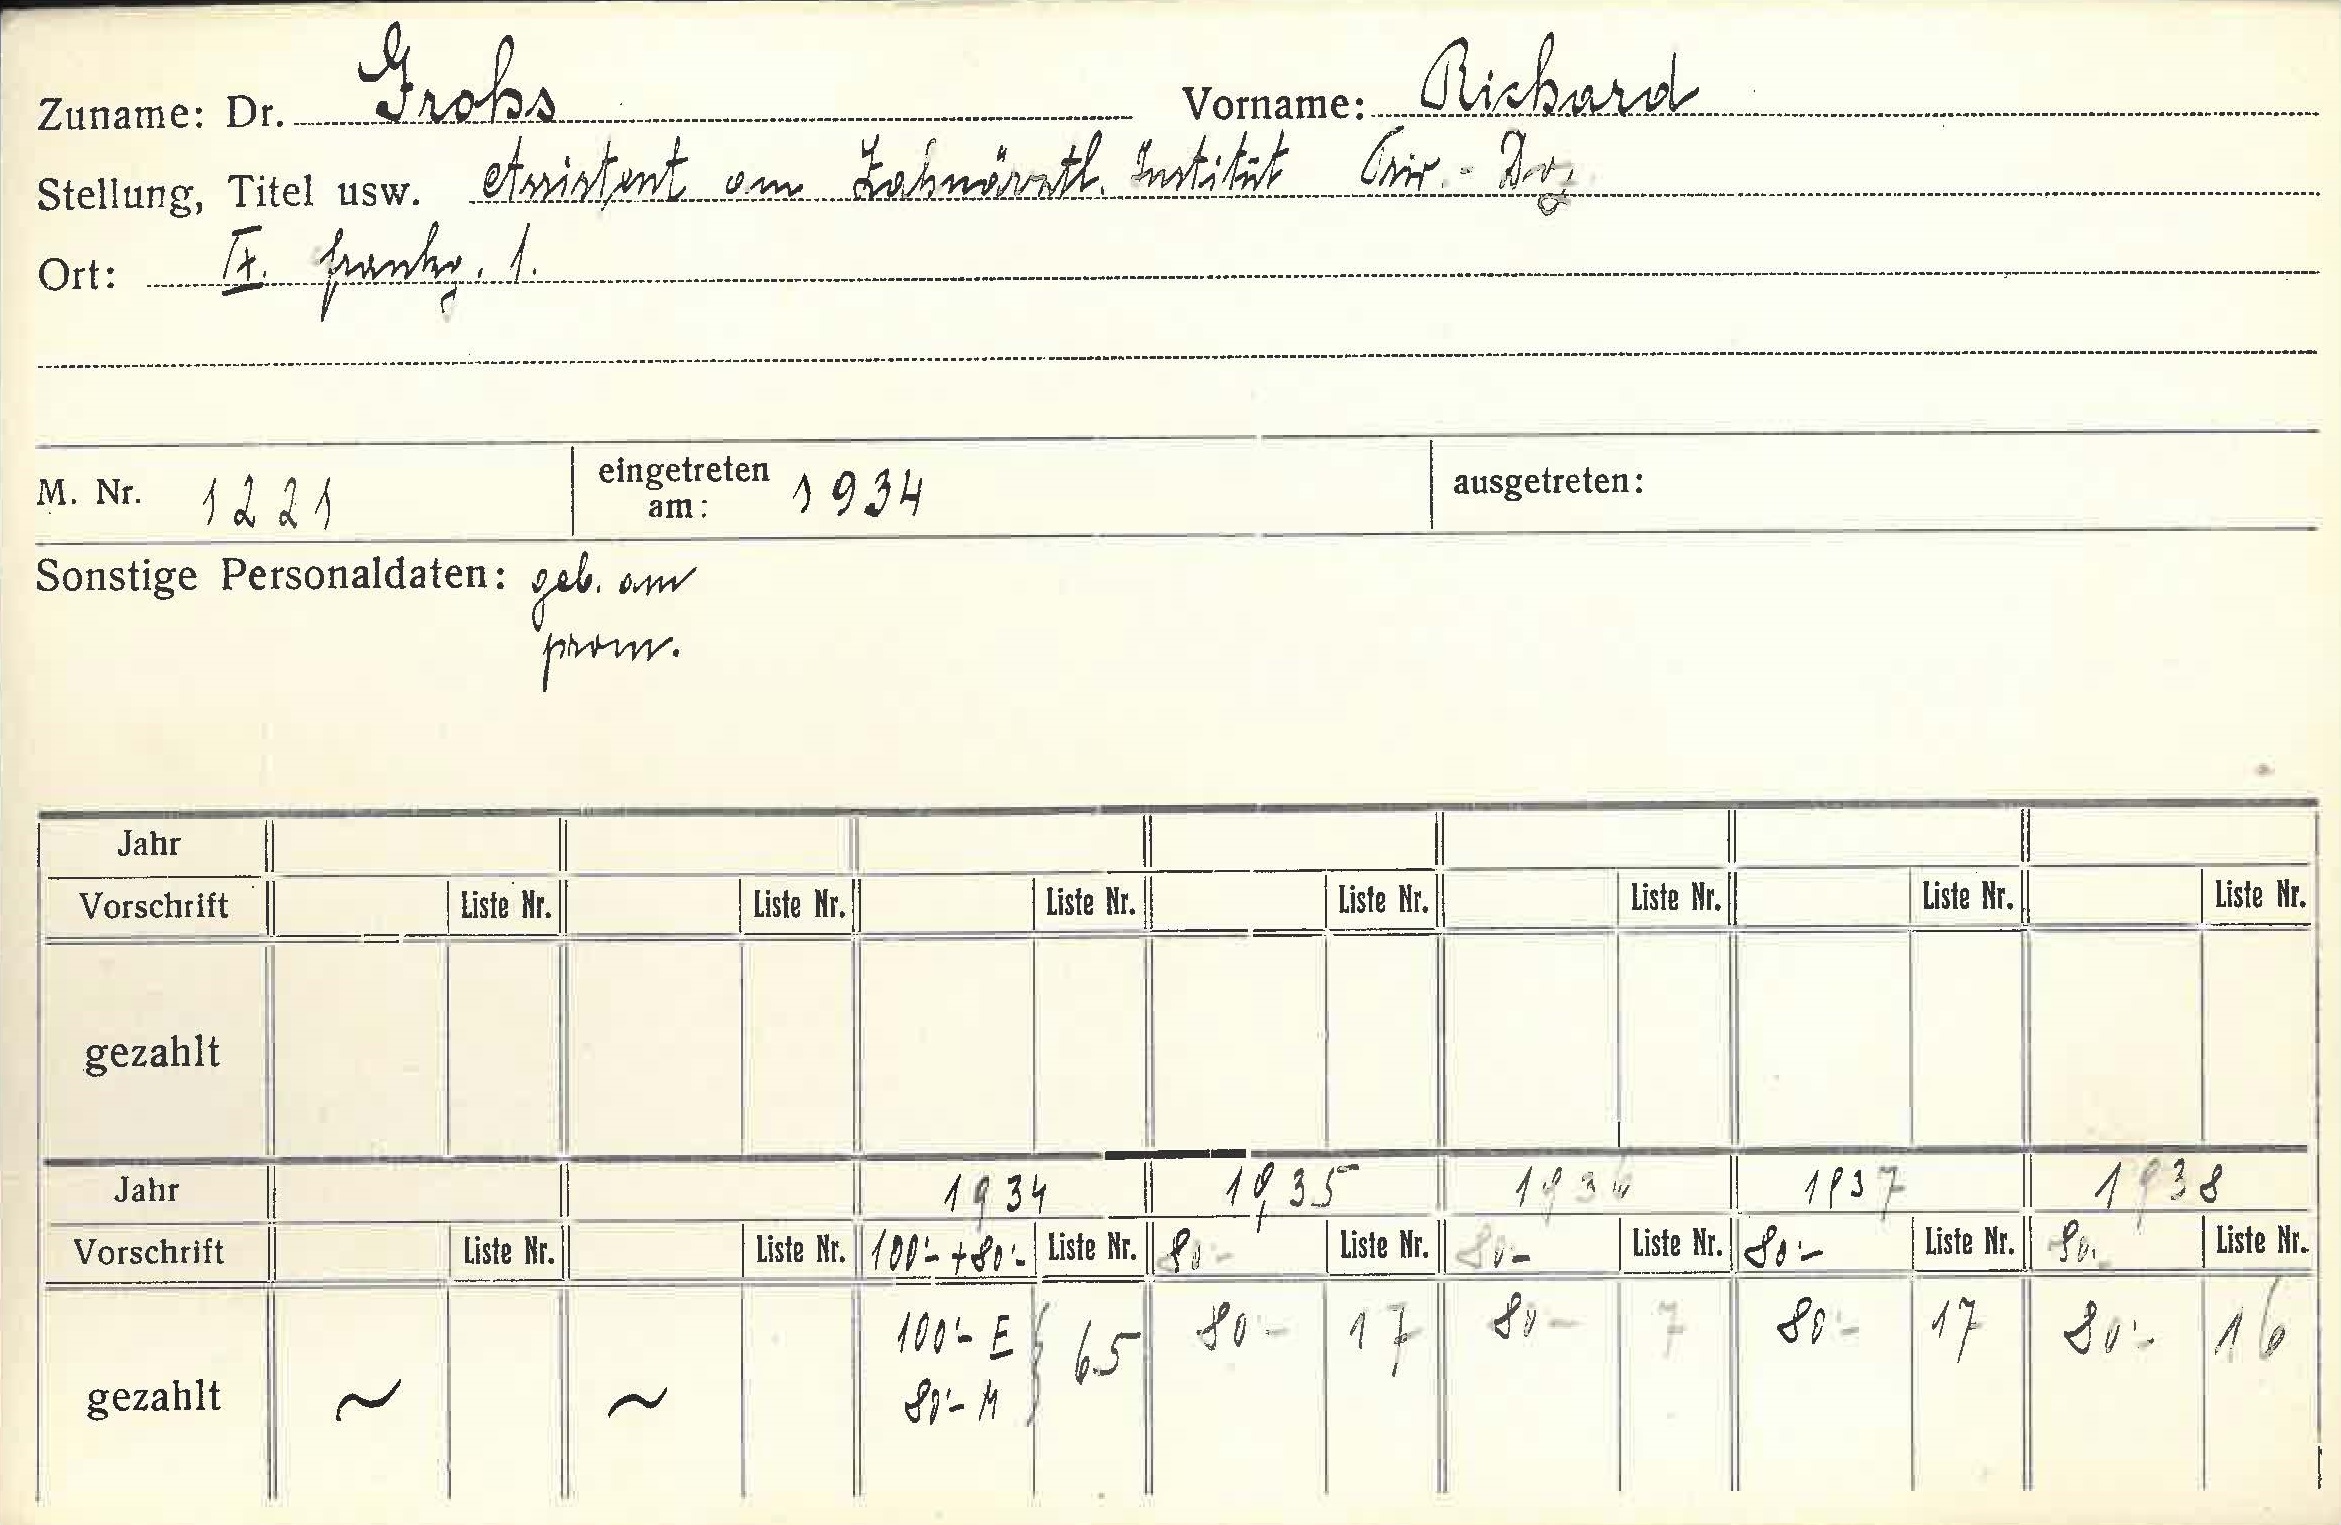 Zuname: Dr. Grohs Vorname: Richard
Stellung, Titel usw. Assistent am Zahnärztl. Institut Priv.-Doz.
Ort: IX. frankg. 1.
M. Nr. 1221 eingetreten am: 1934 ausgetreten:
Sonstige Personaldaten: geb. am
prom.
Jahr
Vorschrift Liste Nr. Liste Nr. Liste Nr. Liste Nr. Liste Nr. Liste Nr. Liste Nr.
gezahlt
Jahr 1934 1935 1936 1937 1938
Vorschrift Liste Nr. Liste Nr. 100'- + 80'- Liste Nr. 80'- Liste Nr. 80'- Liste Nr. 80'- Liste Nr. 80.- Liste Nr.
gezahlt ~ ~ 100'- E 65 80'- 17 80- 7 80'- 17 80'- 16
80'- M